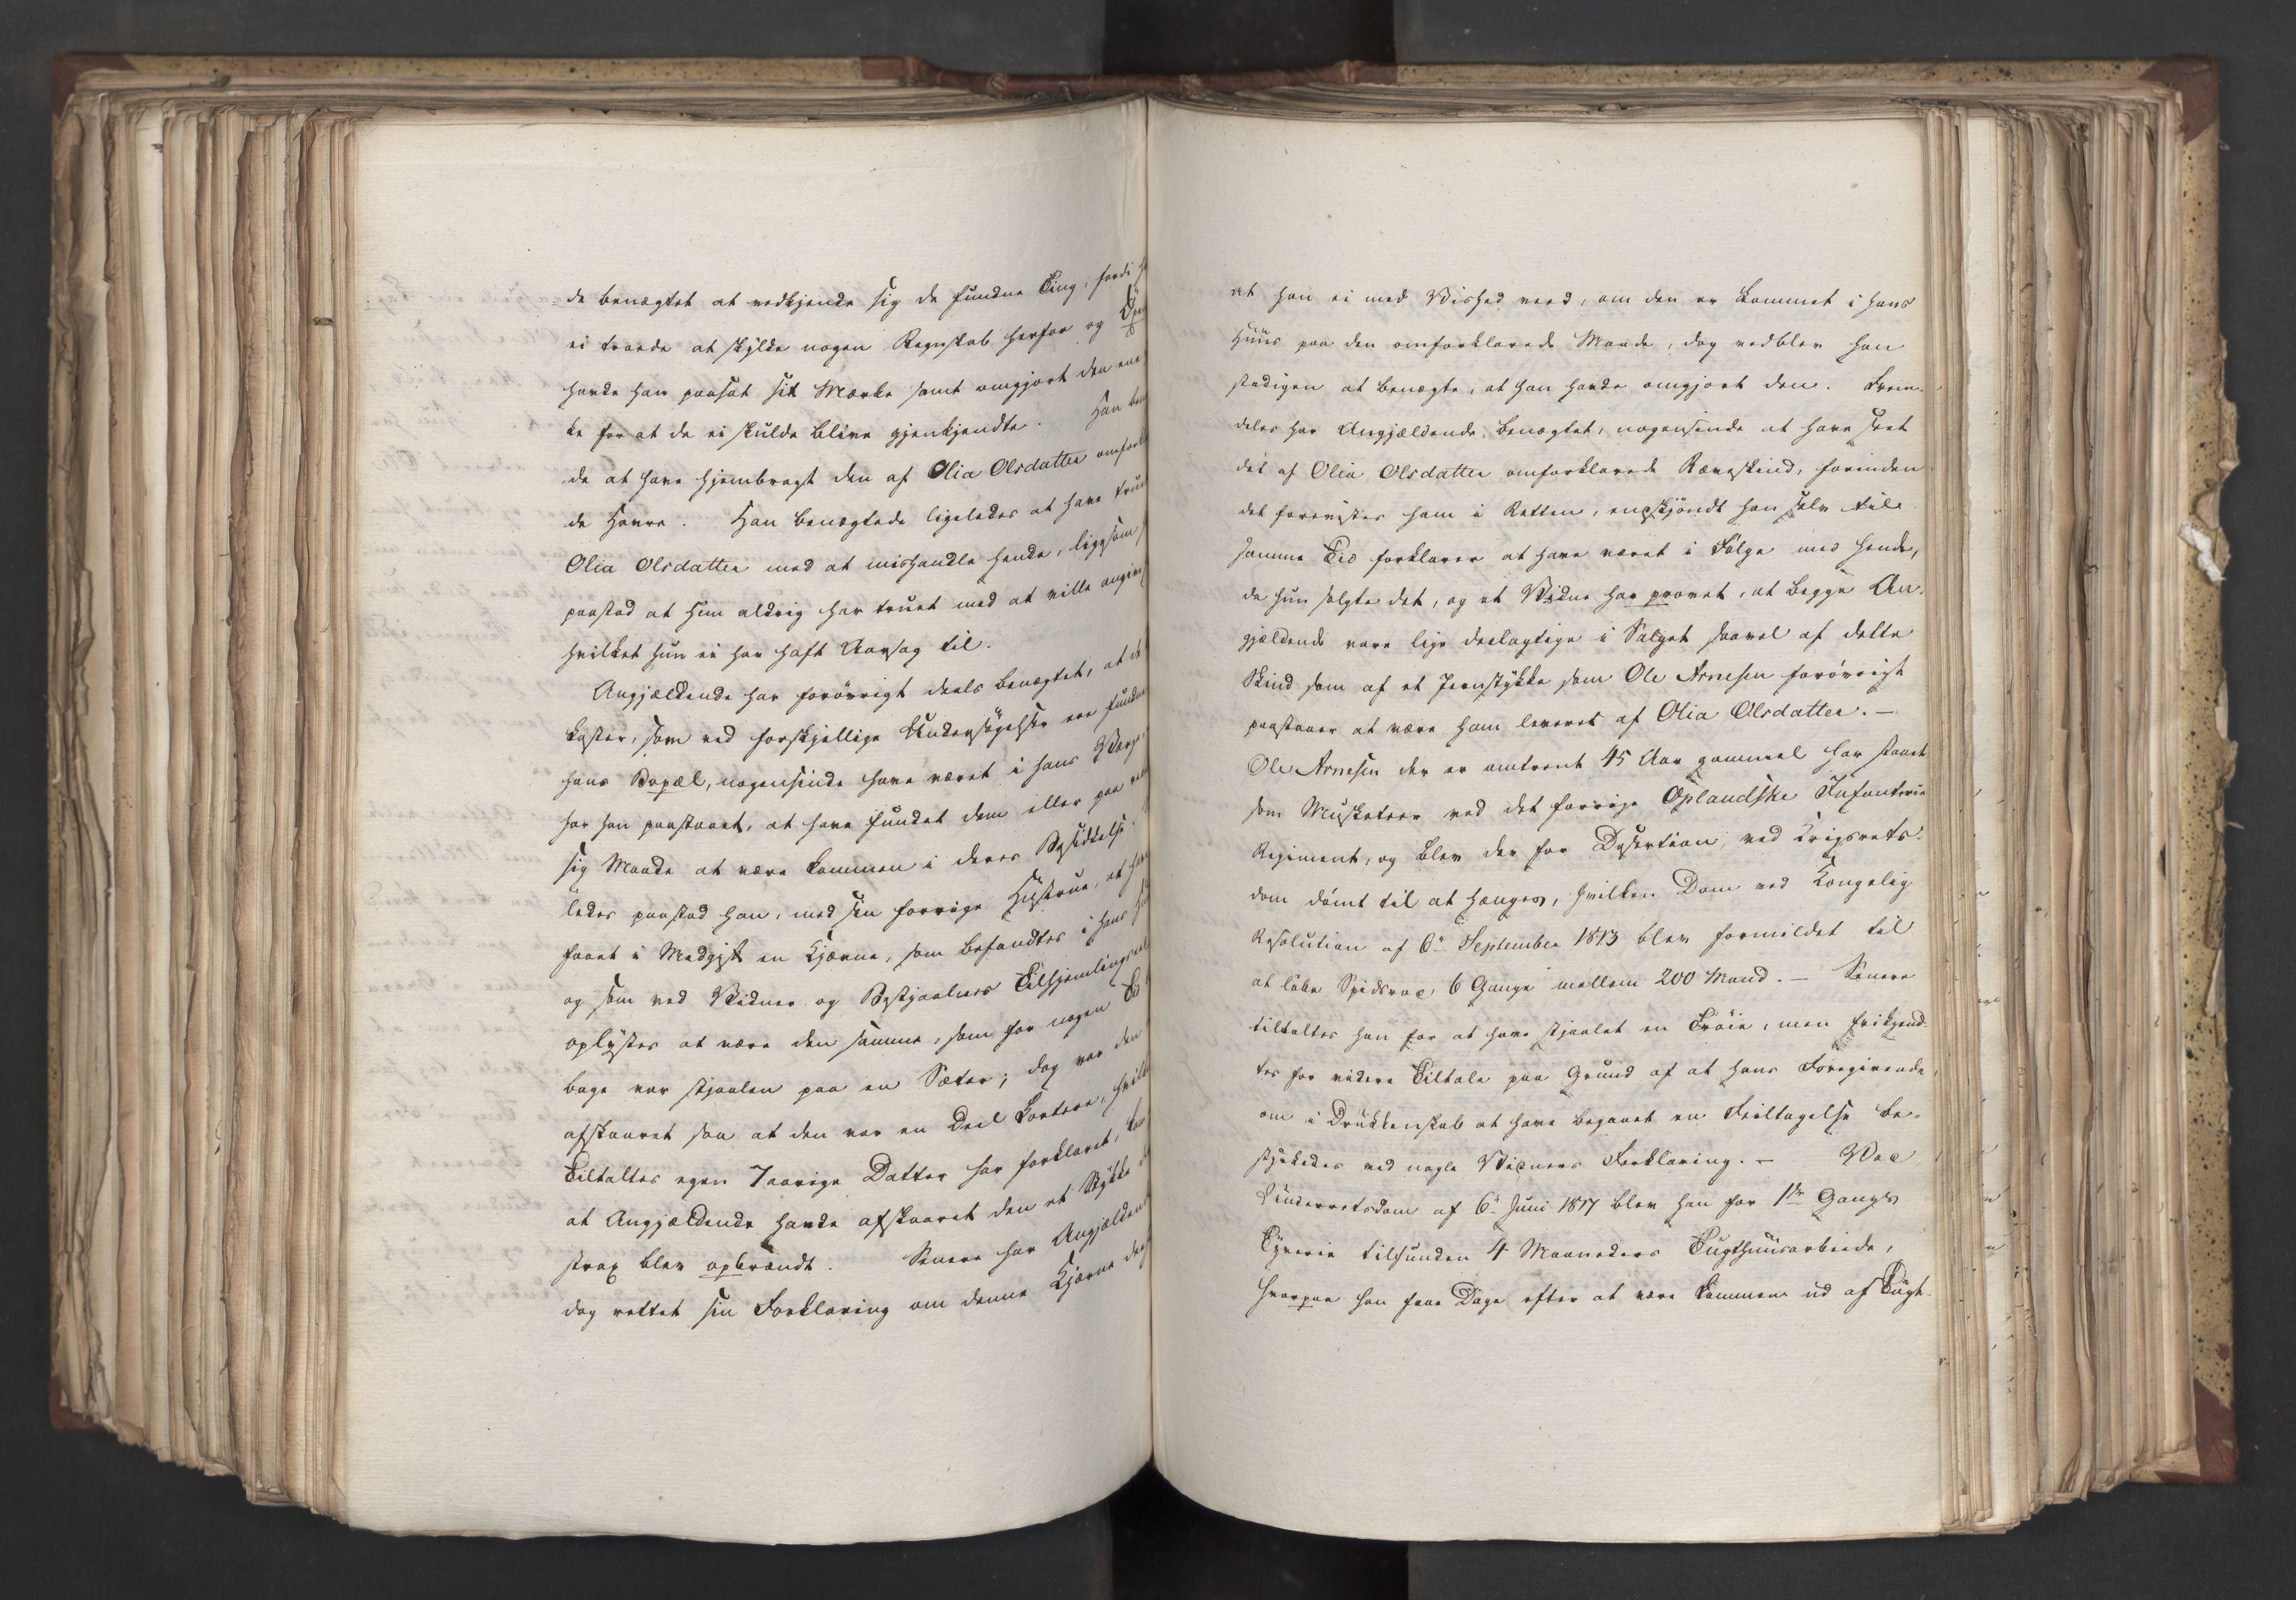 de benægtet at vedkjende sig de fundne Ting, fordi
ei troede at skylde nogen Regnskab herfor og
havde han paasat sit Mærke samt omgjort den ene
ke for at de ei skulde blive gjenkjendte. Han
de at have hjembragt den af Olia Olsdatter
de Havre. Han benægtede ligeledes at have
Olia Olsdatter med at mishandle hende, ligesom
paastod at hun aldrig har truet med at ville
hvilket hun ei har haft Aarsag til.
Angjældende har forövrigt deels benægtet, at de
koster, som ved forskjellige Undersögelser ere
hans Bopæl, nogensinde have været i hans
har han paastaaet, at have fundet dem eller paa
sig Maade at være kommen i deres Besiddelse.
ledes paastod han, med sin forrige Hustrue, at
faaet i Medgift en Kjærne, som befandtes i hans
og som ved Vidner og Bestjaalnes Tilhjemling
oplystes at være den samme, som for nogen Tid
bage var stjaalen paa en Sæter; dog var den
afskaaret saa at den var en Deel kortere,
Tiltaltes egen 7aarige Datter har forklaret,
at Angjældende havde afskaaret den et Stykke
strax blev opbrændt. Senere har
dog rettet sin Forklaring om denne Kjærne
at han ei med Vished veed, om den er kommet i hans
Huus paa den omforklarede Maade, dog vedblev han
stadigen at benægte, at han havde omgjort den. Frem-
deles har Angjældende benægtet, nogensinde at have seet
det af Olia Olsdatter omforklarede Ræveskind, forinden
det forevistes ham i Retten, enskjöndt han selv til
samme Tid forklarer at have været i Fölge med hende,
da hun solgte det, og et Vidne har provet, at begge An-
gjældende vare lige deelagtige i Salget saavel af dette
Skind som af et Jernstykke som Ole Arnesen forövrigt
paastaaer at være ham leveret af Olia Olsdatter. —
Ole Arnesen der er omtrent 45 Aar gammel har staaet
som Musketeer ved det forrige Oplandske Infanterie
Regiment, og blev der for Desertion, ved Krigsrets-
dom dömt til at hænges, hvilken Dom ved Kongelig
Resolution af 6te September 1813 blev formildet til
at löbe Spidsrod 6 Gange mellem 200 Mand. — Senere
tiltaltes han for at have stjaalet en Tröie, men frikjend-
tes for videre Tiltale paa Grund af at hans Foregivende
om i Drukkenskab at have begaaet en Feiltagelse be-
styrkedes ved nogle Vidners Forklaring. — Ved
Underretsdom af 6te Juni 1817 blev han for 1ste Gangs
Tyverie tilfunden 4 Maaneders Tugthuusarbeide,
hvorpaa han faae Dage efter at være kommen ud af Tugt-